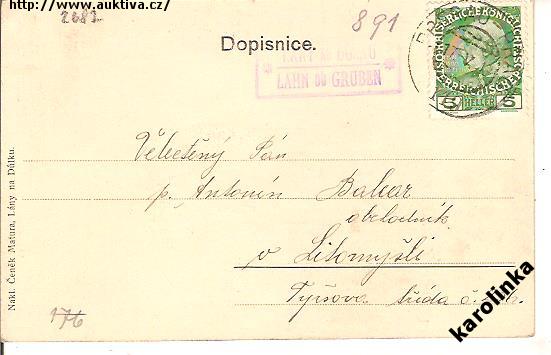 http://www.auktiva.cz/
2681
891
Dopisnice.
LÁNY NA DŮLKU
LAHN OB GRUBEN
KAISERLICHE KÖNIGLICHE ÖSTERREICHISCHE POST
5 HELLER 5
Velectěný Pán
p. Antonín Bakar
obchodník
v Litomyšli
Tyršova třída č.
Nakl. Čeněk Matura, Lány na Důlku.
176
karolinka